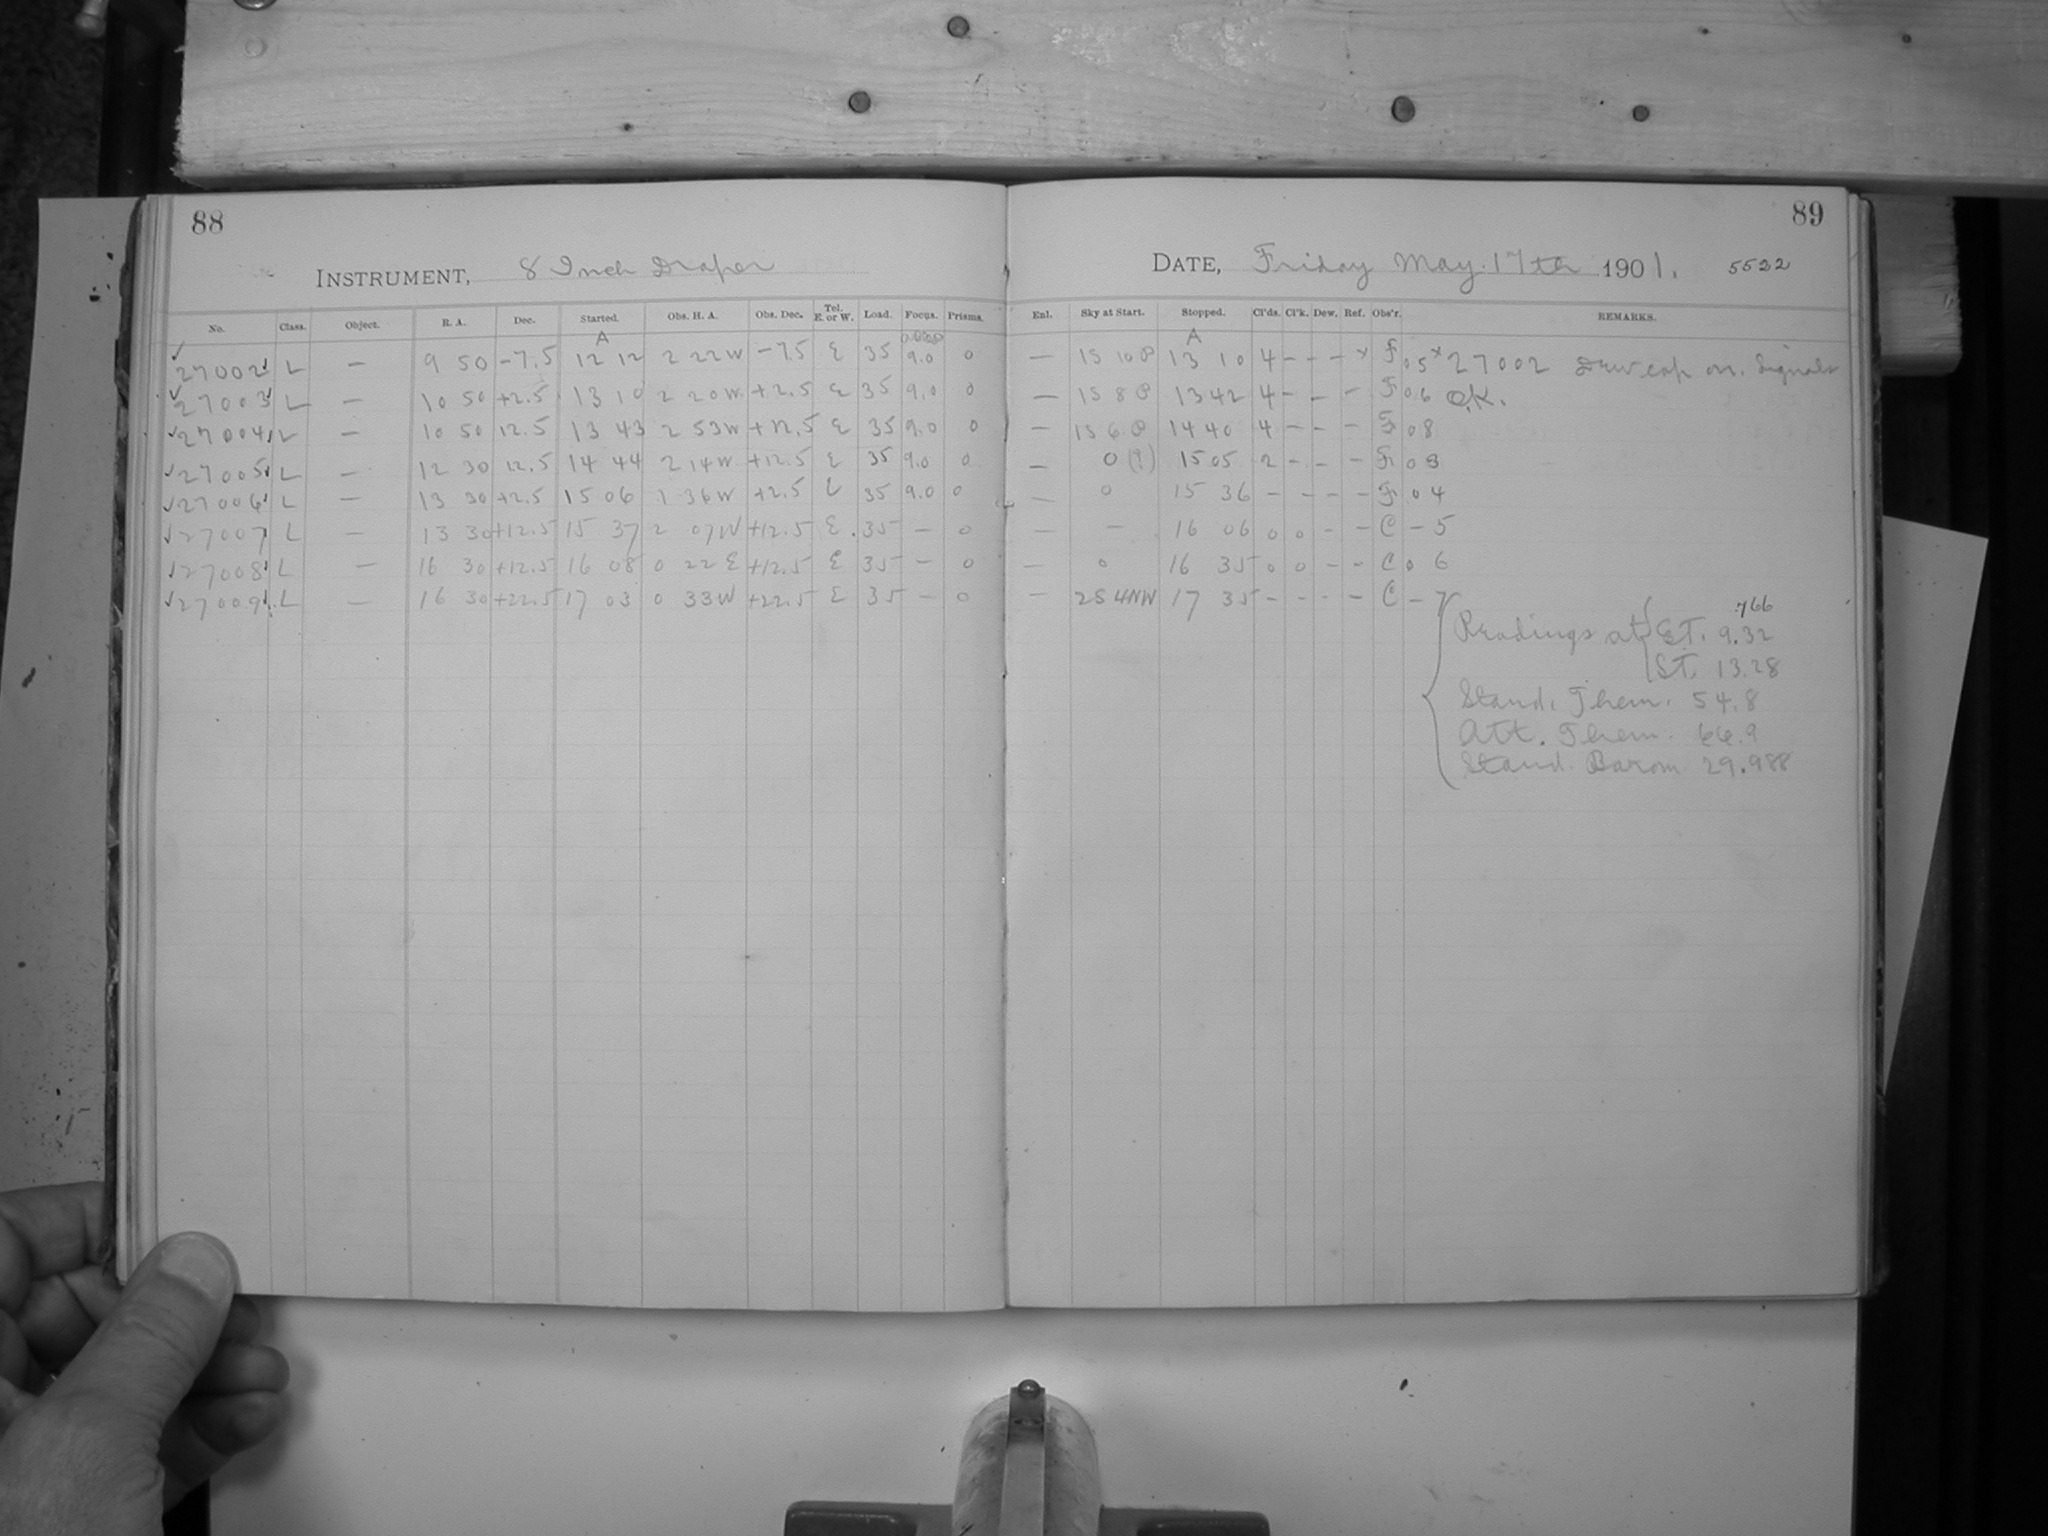 88
89
INSTRUMENT, 8 Inch Draper
DATE, Friday May 17th 1901. 5522
No. Class. Object. R. A. Dec. Started. Obs. H. A. Obs. Dec. Tel. E. or W. Load. Focus. Prisms. Enl. Sky at Start. Stopped. Cl'ds. Cl'k. Dew. Ref. Obs'r. REMARKS.
A A
27002 L — 9 50 -7.5 12 12 2 22W -7.5 E 35 9.0 0 — 13 10 4 - - - x F 05 x 27002 Dew cap on. Signals
27003 L — 10 50 +2.5 13 10 2 20W +2.5 E 35 9.0 0 — 13 42 4 - - - F 06 O.K.
27004 L — 10 50 12.5 13 43 2 53W +12.5 E 35 9.0 0 — 14 40 4 - - - F 08
27005 L — 12 30 12.5 14 44 2 14W +12.5 E 35 9.0 0 — 0 (?) 15 05 2 - - - F 03
27006 L — 13 30 +2.5 15 06 1 36W +2.5 E 35 9.0 0 — 0 15 36 - - - - F 04
27007 L — 13 30 +12.5 15 37 2 07W +12.5 E 35 — 0 — — 16 06 0 0 - - C - 5
27008 L — 16 30 +12.5 16 08 0 22 E +12.5 E 35 — 0 — 0 16 35 0 0 - - C 0 6
27009 L — 16 30 +22.5 17 03 0 33W +22.5 E 35 — 0 — 2S 4NW 17 35 - - - - C - 7
.766
Readings at E.T. 9.32
S.T. 13.28
Stand. Them. 54.8
Att. Them. 66.9
Stand. Barom. 29.988